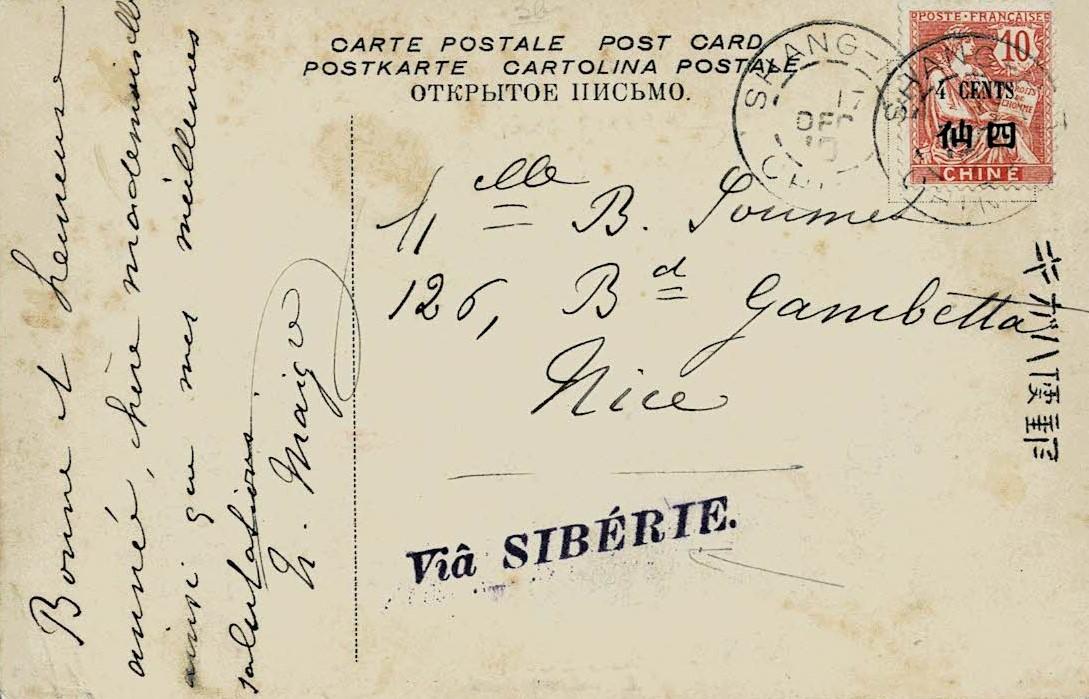 CARTE POSTALE POST CARD
POSTKARTE CARTOLINA POSTALE
ОТКРЫТОЕ ПИСЬМО.
POSTE·FRANÇAISE
10
DROITS DE L'HOMME
4 CENTS
仙四
CHINE
SHANG-
DEC
10
CHI
SHANG
Mlle B.
126, Bd Gambetta
Nice
Viâ SIBÉRIE.
Bonne et heureuse
année, chère mademoiselle
ainsi que mes meilleures
salutations